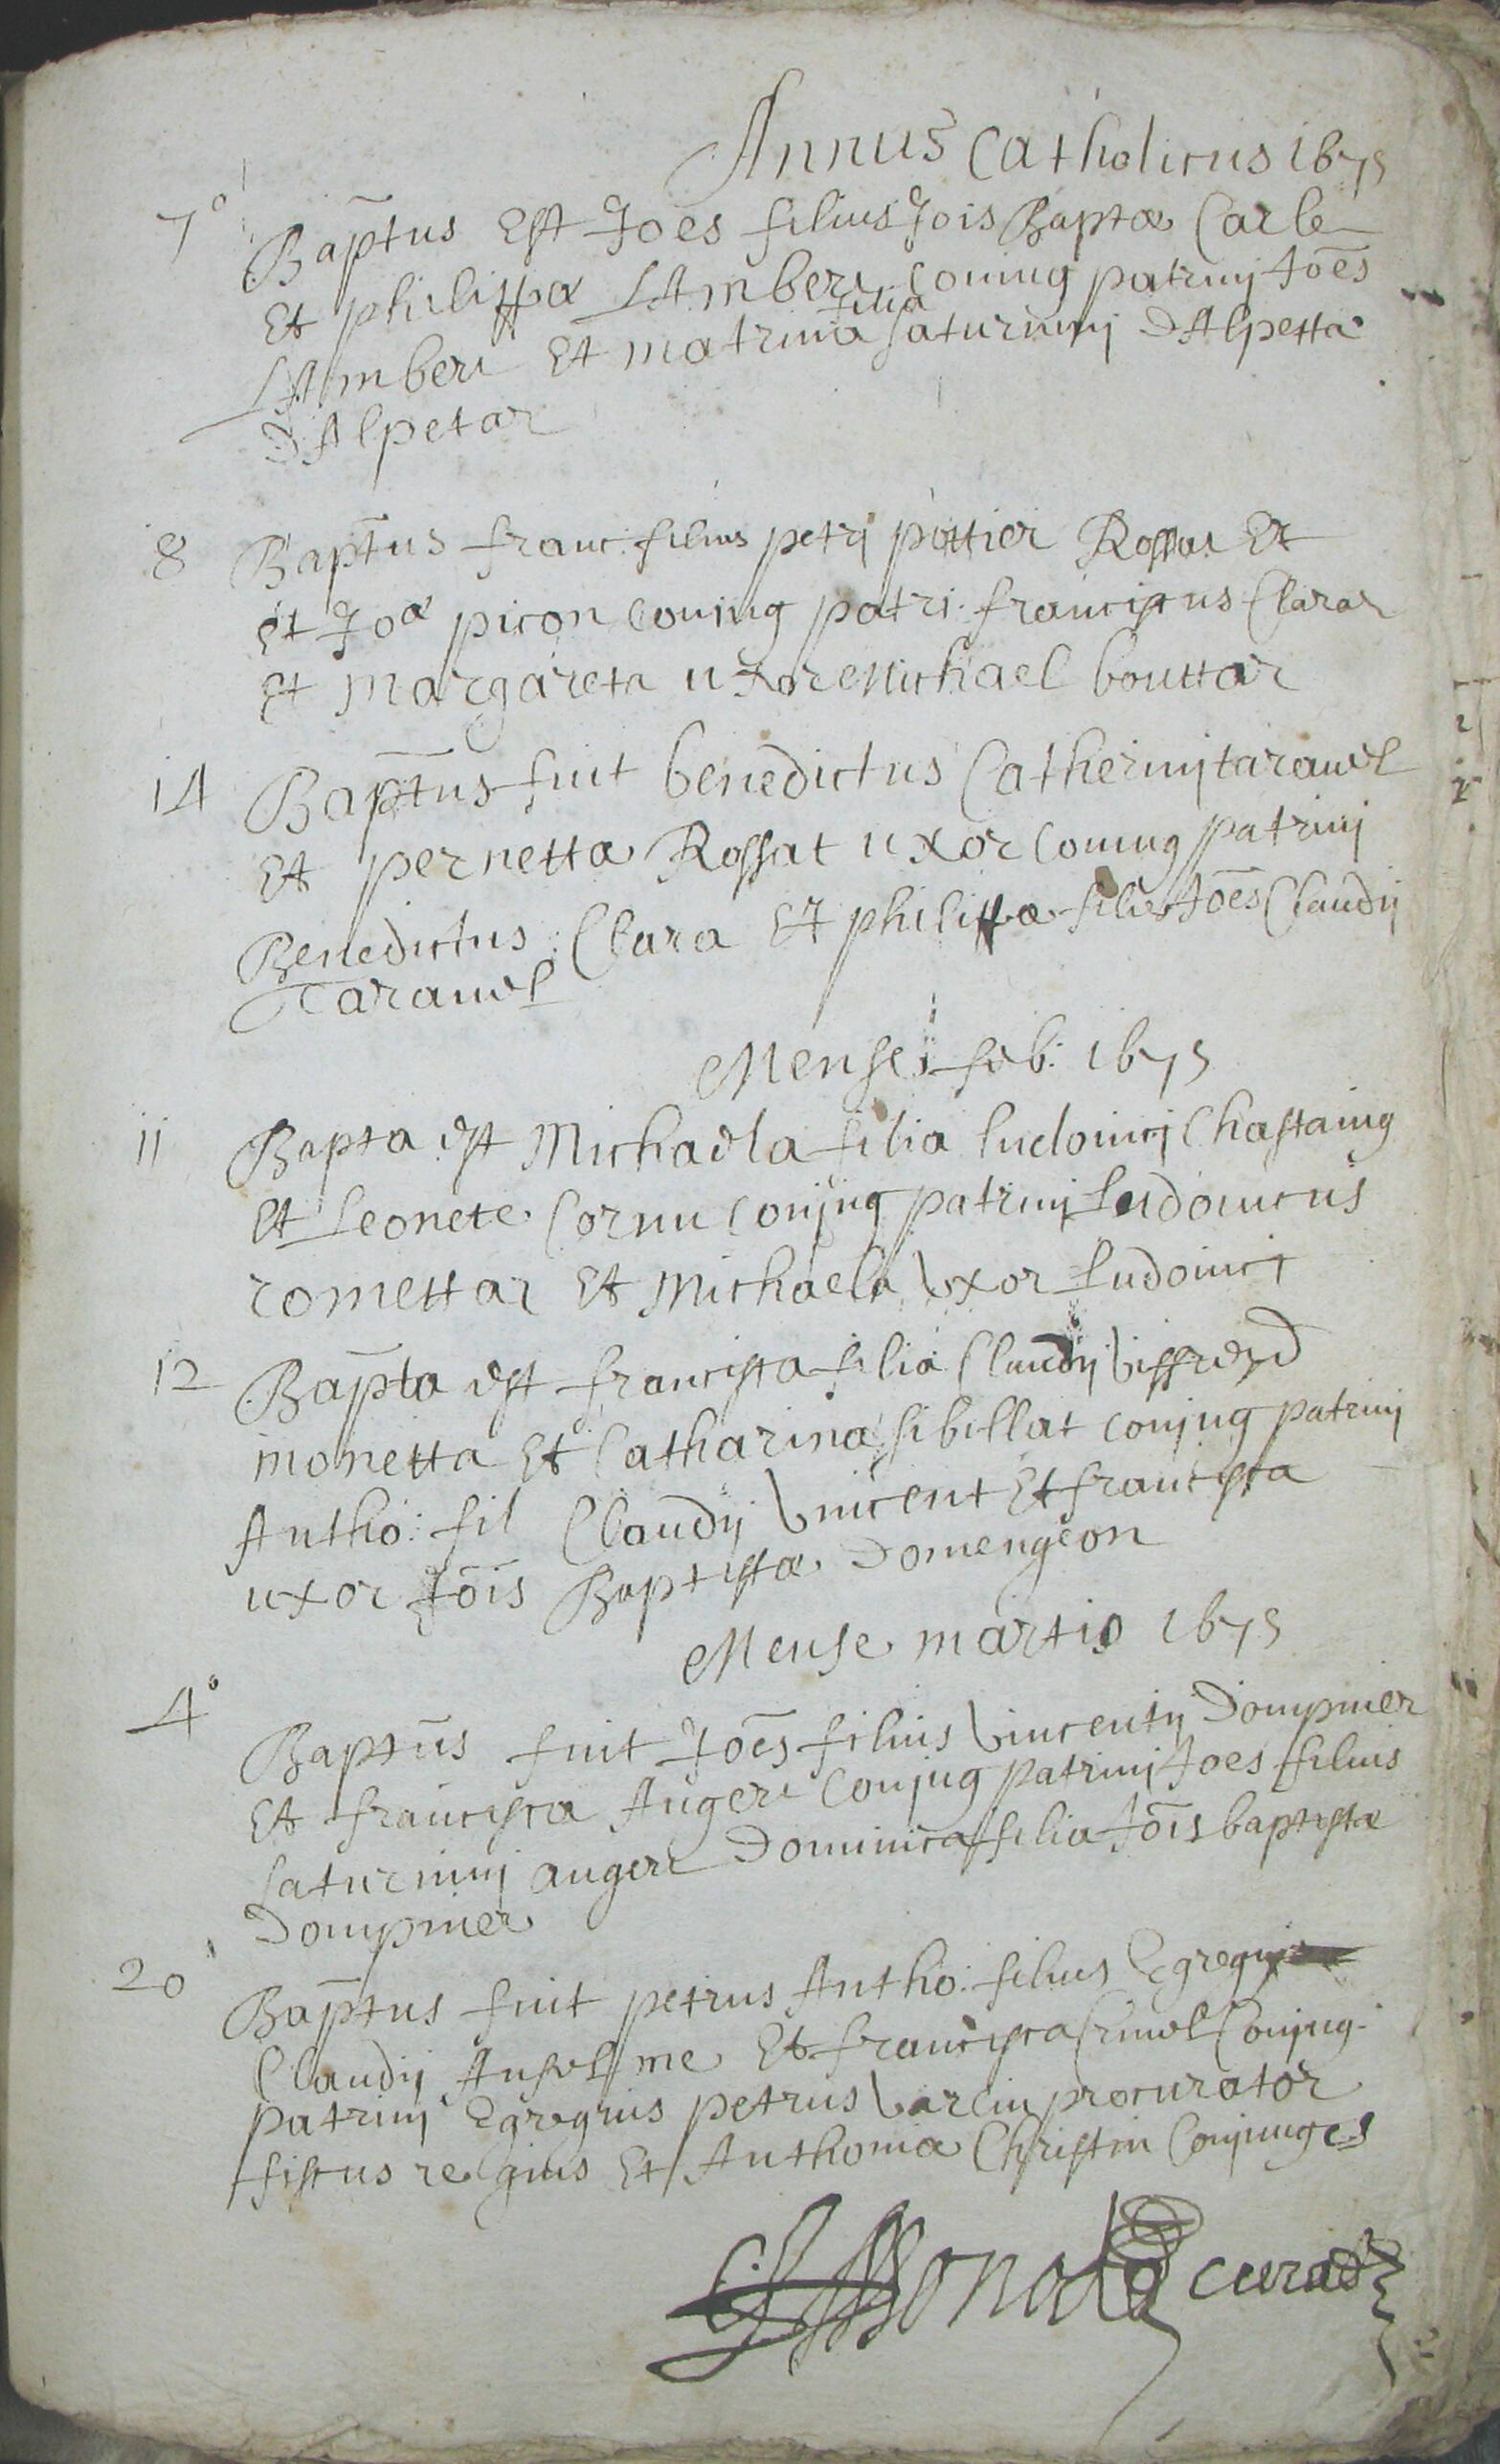 Annus Catholicus 1675
7° Bap̄tus Est Joes filius Jois Baptæ Carle
Et philippa LAmberi Coniug patrinj Jōes
filia
LAmberi Et matrina saturninj DAlpetta
DAlpetar
8 Bap̄tus franc: filius petrj pottier Rossat Et
Et Joa picon Coniug patri: franciscus Clarar
Et Margareta uxore Michael bouttar
14 Bap̄tus fuit benedictus Catherinj tarauel
Et pernetta Rossat uxor Coniug patrinj
Benedictus Clara Et philippa filia Jōes Claudij
Tarauel
Mense feb: 1675
11 Bapta est Michaela filia ludouicj Chastaing
Et Leonete Cornu Conjug patrinj Ludouicus
romettar Et Michaela Vxor Ludouicj
12 Bap̄ta est francisca filia Claudij Viffreyd
monetta Et Catharina sibillat conjug patrinj
Antho: fil Claudij Vincent Et francisca
uxor Jōis Baptistæ Domengeon
Mense martio 1675
4° Baptūs fuit Jōes filius Vincentij Dompnier
Et francisca Augeri Conjug patrinj Joes filius
saturninj augeri Dominica filia Jōis baptistæ
Dompnier
20 Bap̄tus fuit petrus Antho: filius Egregij
Claudij Anselme Et francisca Conjug.
patrinj Egregius petrus Varcin procurator
fiscus regius Et Anthonia Christin Conjuges
curad